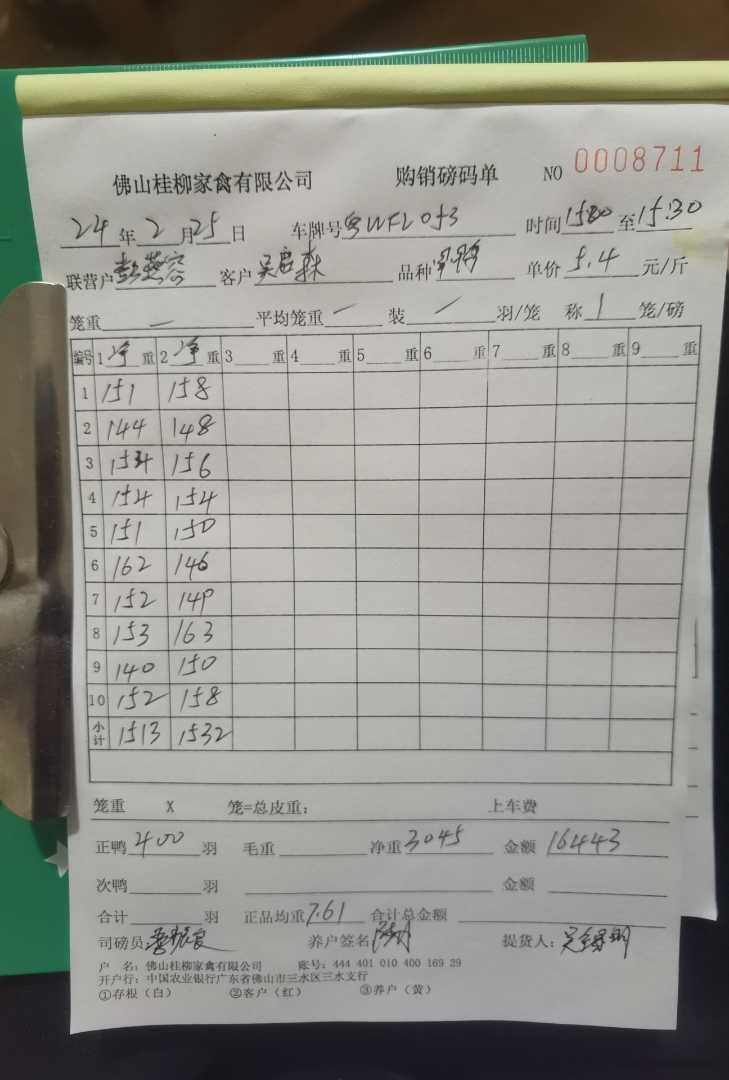 佛山桂柳家禽有限公司 购销磅码单 NO 0008711
24年2月25日 车牌号粤WFL053 时间15:00至15:30
联营户 客户吴启森 品种 单价5.4元/斤
笼重 — 平均笼重 — 装 / 羽/笼 称1笼/磅
编号 1净重 2净重 3重 4重 5重 6重 7重 8重 9重
1 151 158
2 144 148
3 154 156
4 154 154
5 151 150
6 162 146
7 152 149
8 153 163
9 140 150
10 152 158
小计 1513 1532
笼重 X 笼=总皮重: 上车费
正鸭400羽 毛重 净重3045 金额16443
次鸭 羽 金额
合计 羽 正品均重7.61 合计总金额
司磅员 养户签名 提货人:
户 名:佛山桂柳家禽有限公司 账号:444 401 010 400 169 29
开户行:中国农业银行广东省佛山市三水区三水支行
①存根(白) ②客户(红) ③养户(黄)